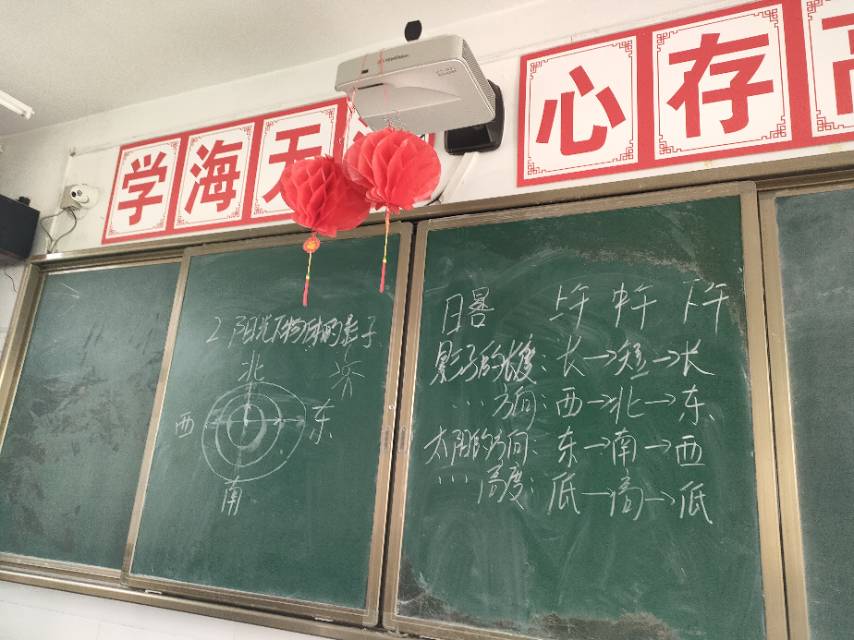 学海无
心存高
2 阳光下物体的影子
北
西 东
南
日晷 上午 中午 下午
影子的长度：长→短→长
〃 方向：西→北→东
太阳的方向：东→南→西
〃 高度：低→高→低